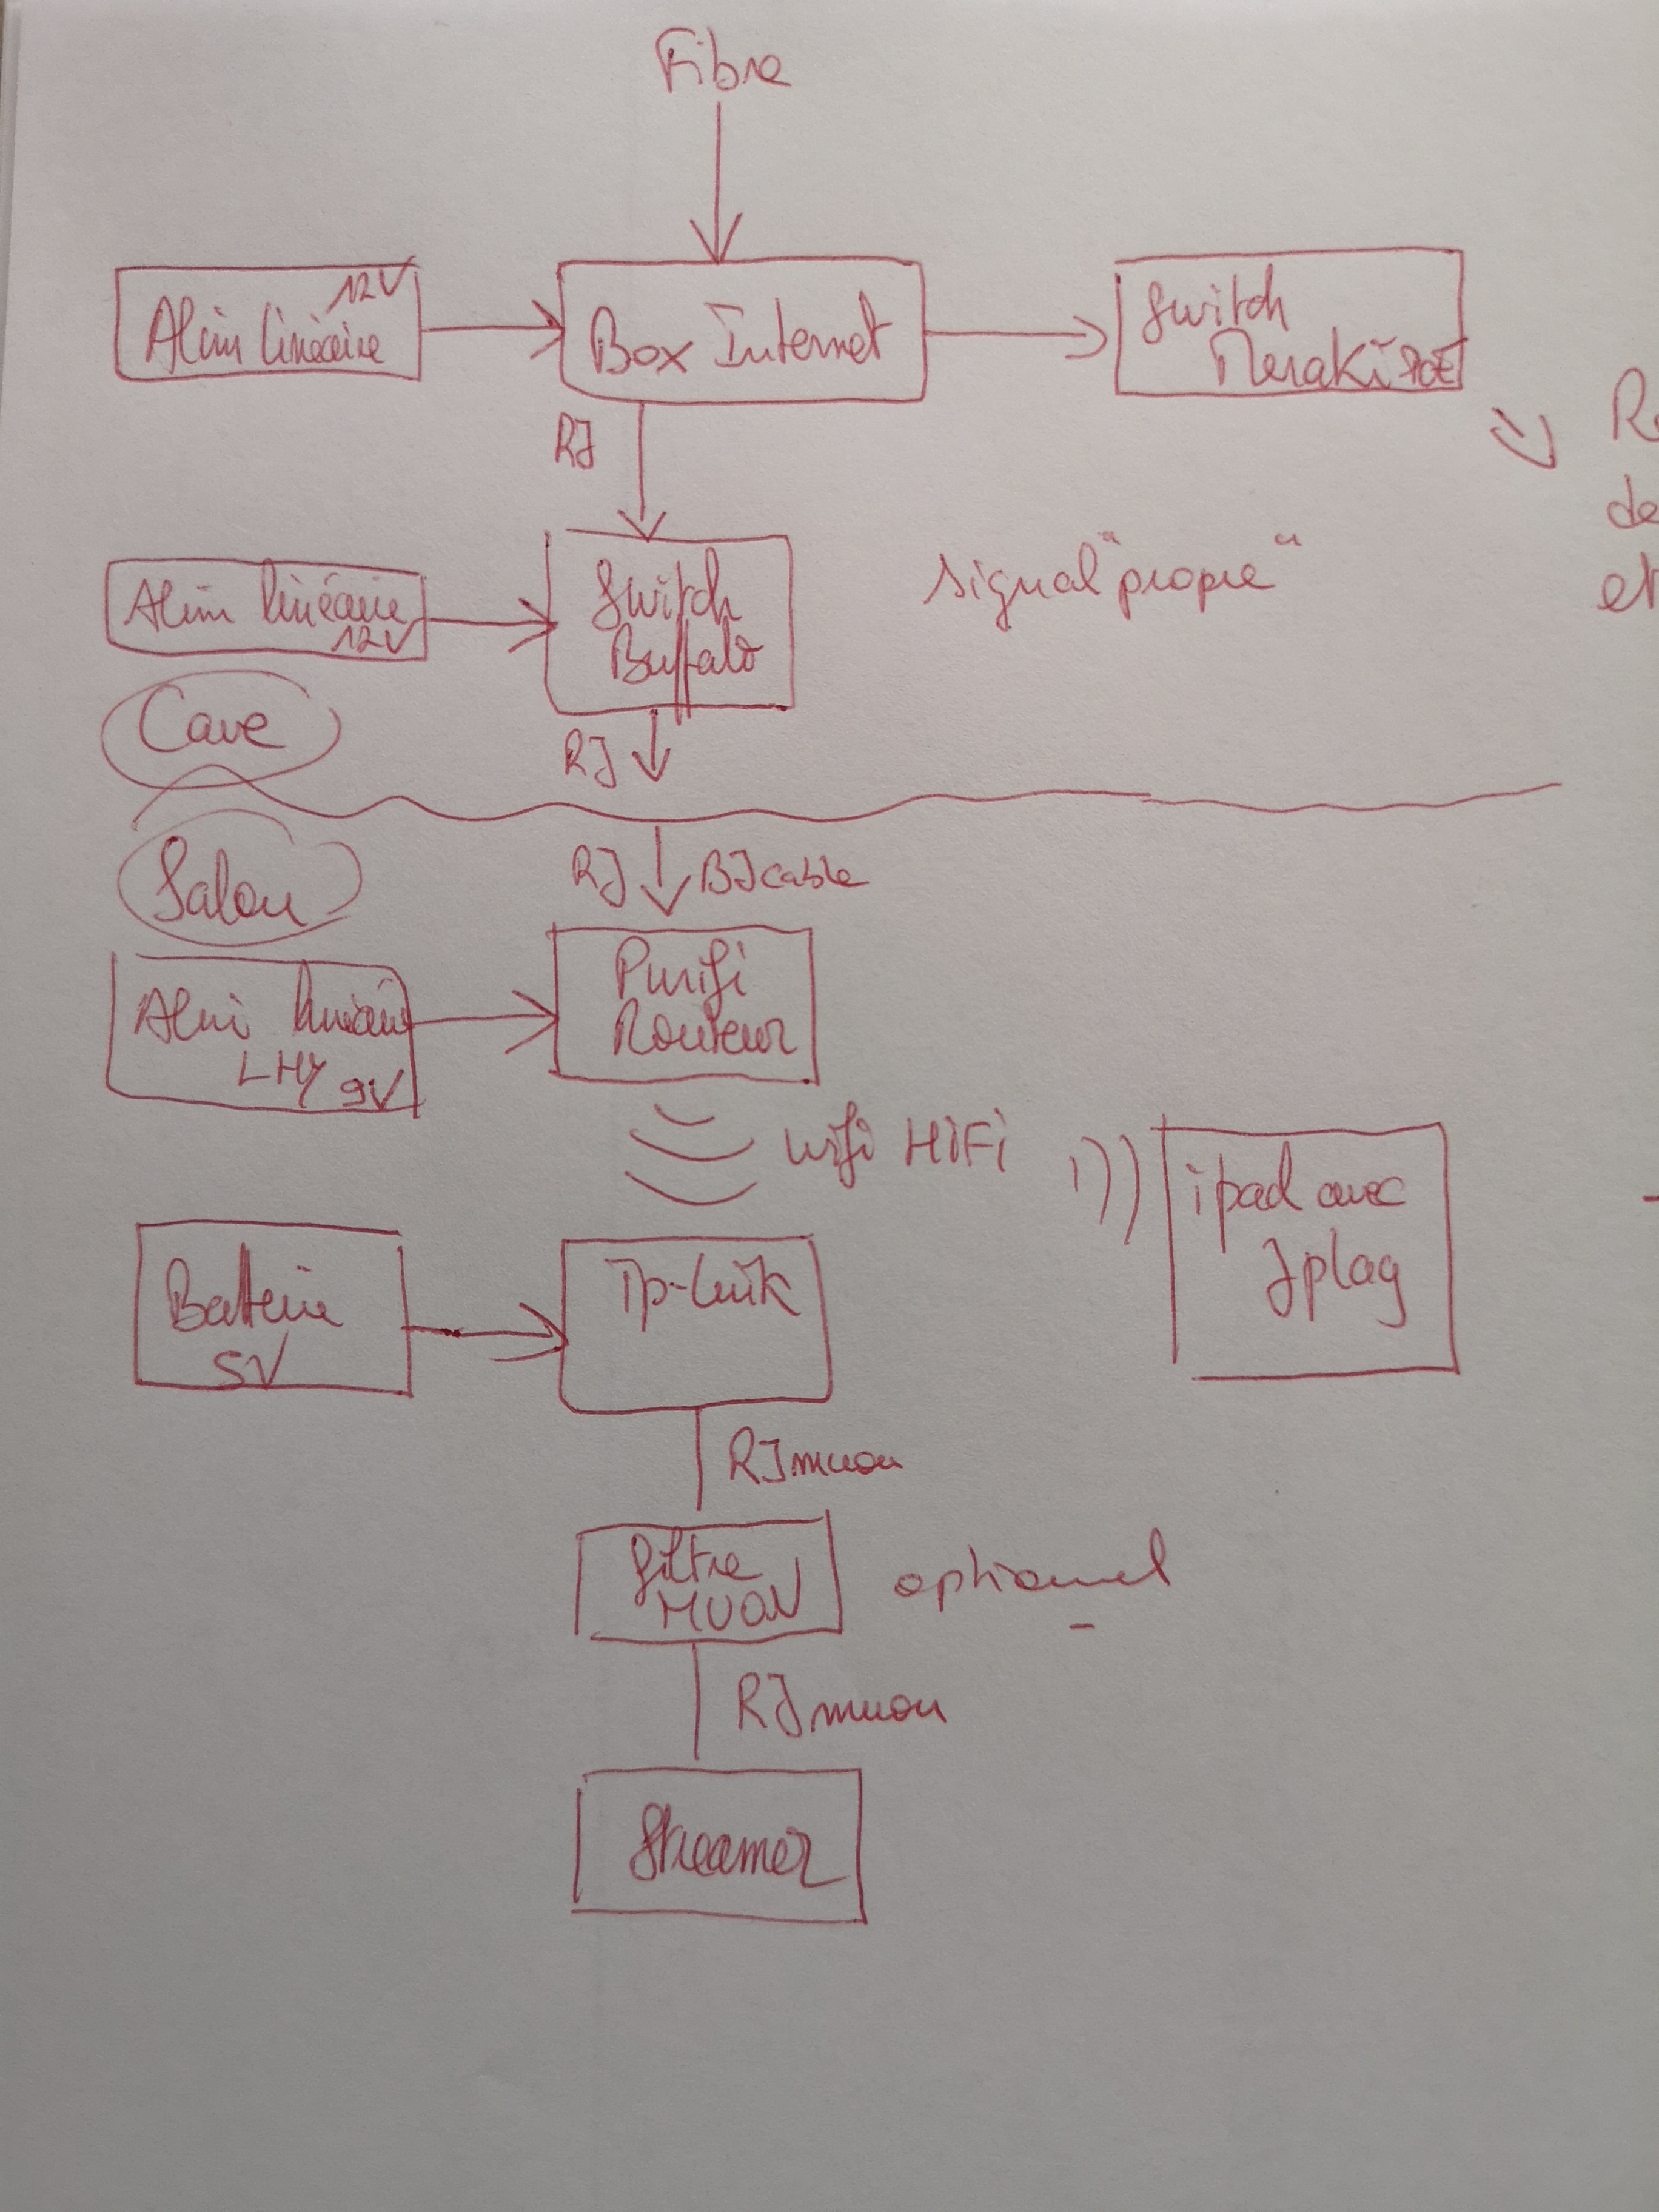 Fibre
Alim linéaire 12V
Box Internet
Switch
Meraki POE
RJ
de
et
Alim linéaire
12V
Switch
Buffalo
signal "propre"
Cave
RJ
Salon
RJ
BJcable
Purifi
Routeur
Alim linéaire
LHY 9V
wifi HiFi
ipad avec
Jplay
Batterie
5V
Tp-Link
RJ muon
filtre
MUON
optionnel
RJ muon
Streamer